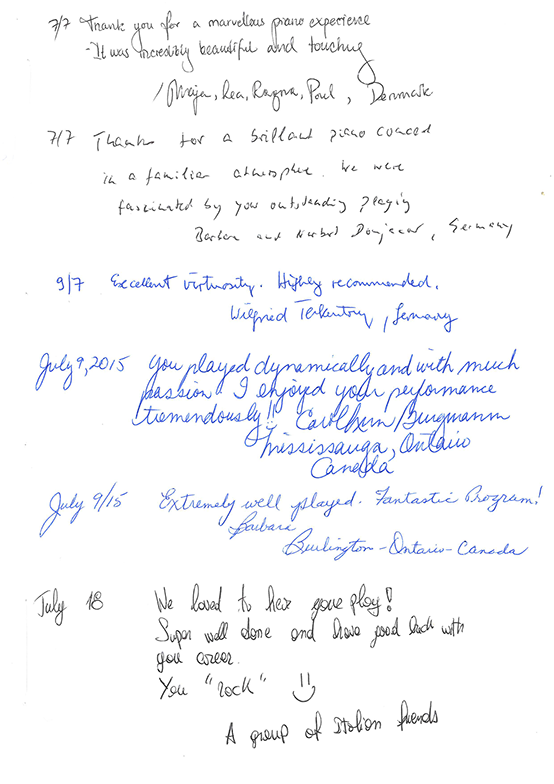 7/7 Thank you for a marvellous piano experience
- It was incredibly beautiful and touching
/ Maja, Lea, Ragna, Poul, Denmark
7/7 Thanks for a brillant piano concert
in a familiar atmosphere. We were
fascinated by your outstanding playing
Barbara and Norbert, Germany
9/7 Excellent virtuosity. Highly recommended.
Wilfried, Germany
July 9, 2015 You played dynamically and with much
passion. I enjoyed your performance
tremendously!! Bergmann
Mississauga, Ontario
Canada
July 9/15 Extremely well played. Fantastic Program!
Barbara
Burlington - Ontario - Canada
July 18 We loved to hear your play!
Super well done and have good luck with
your career.
You "rock"
A group of Italian friends